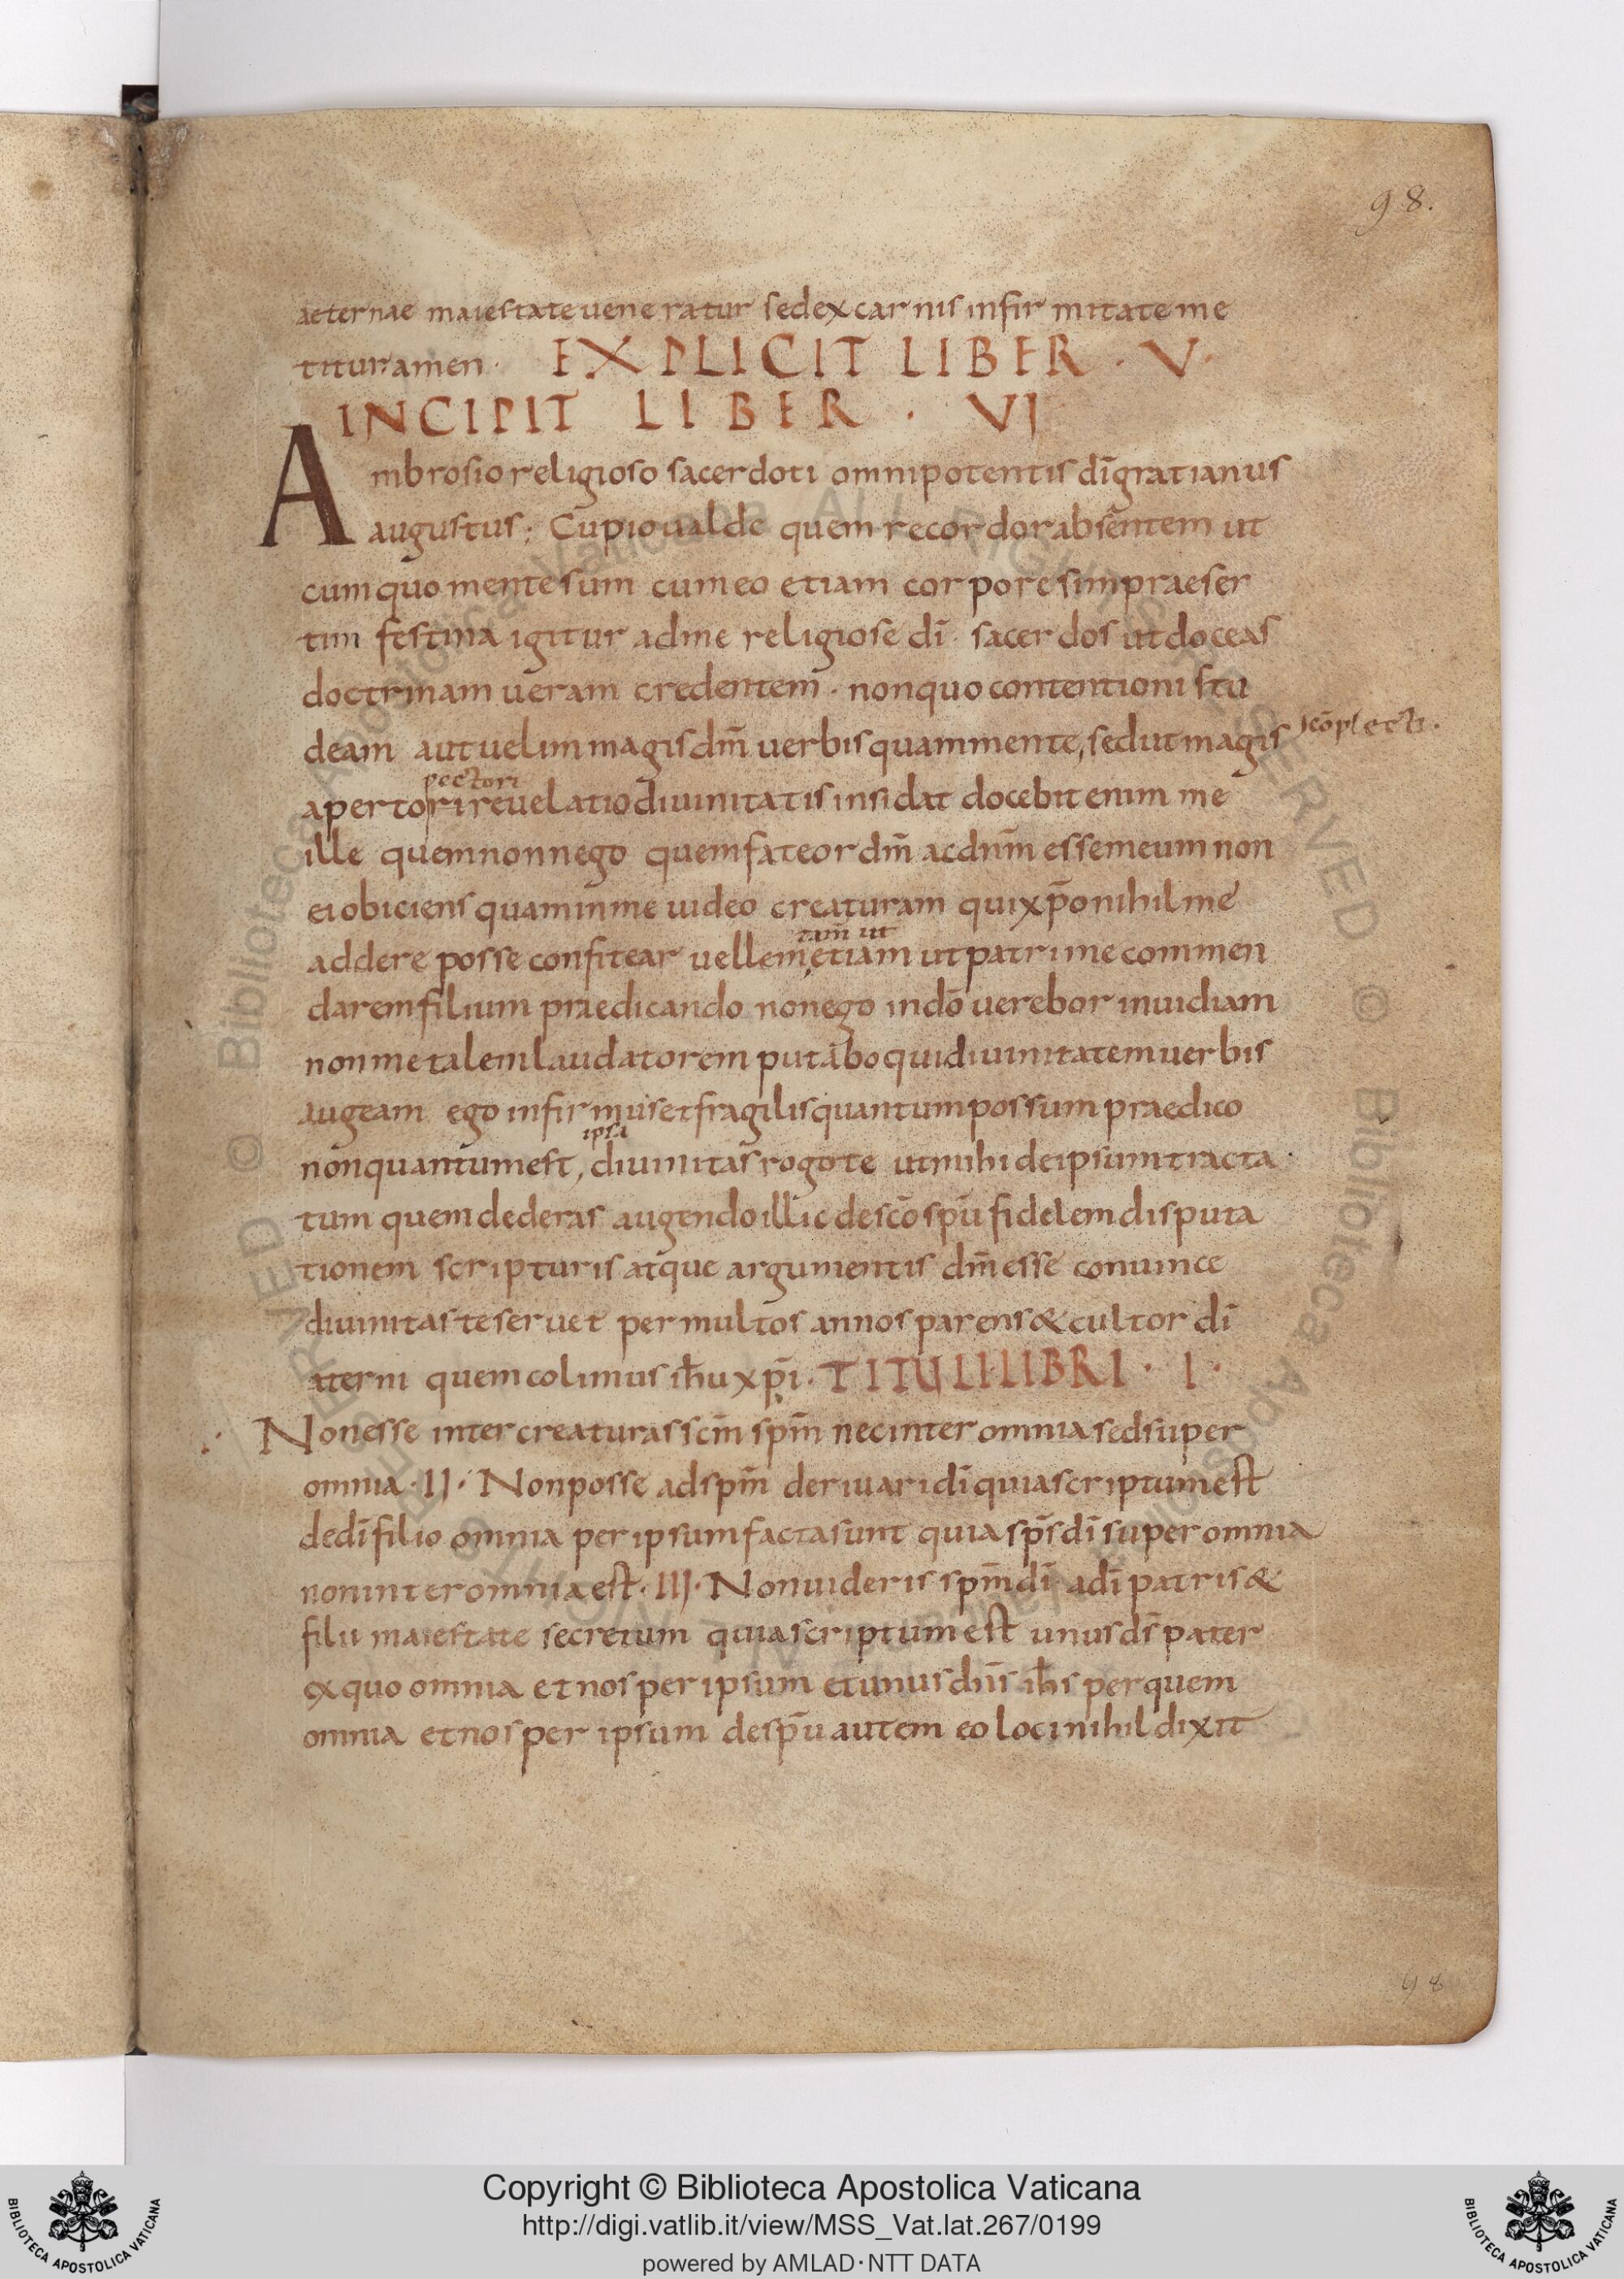 98.
aeternae maiestate veneratur sed ex carnis infirmitate me
titur amen · EXPLICIT LIBER · V ·
INCIPIT LIBER · VI
Ambrosio religioso sacerdoti omnipotentis dī gratianus
augustus; Cupio ualde quem recordor absentem ut
cum quo mente sum cum eo etiam corpore sim praeser
tim festina igitur ad me religiose dī · sacerdos ut doceas
doctrinam ueram credentem · non quo contentioni stu
deam aut uelim magis dm̄ uerbis quam mente, sed ut magis
pectori
apertori reuelatio diuinitatis insidat docebit enim me
ille quem non nego quem fateor dm̄ ac dnm̄ esse meum non
ei obiciens quam in me uideo creaturam qui xp̄o nihil me
addere posse confitear uellem, etiam ut patri me commen
tam̄ ut
darem filium praedicando non ego in dō uerebor inuidiam
non me talem laudatorem putabo qui diuinitatem uerbis
augeam ego infirmus et fragilis quantum possum praedico
ipsa
non quantum est, diuinitas rogo te ut mihi de ipsum tracta ·
tum quem dederas augendo illic de scō spū fidelem disputa
tionem scripturis atque argumentis dm̄ esse conuince
diuinitas te seruet per multos annos parens & cultor dī
aterni quem colimus ih̄u xp̄i · TITULI LIBRI · I ·
Non esse inter creaturas scm̄ spm̄ nec inter omnia sed super
omnia · II · Non posse ad spm̄ deriuari dī quia scriptum est
de dī filio omnia per ipsum facta sunt quia sp̄s dī super omnia
non inter omnia est · III · Non uideris spm̄ dī a dī patris &
filii maiestate secretum quia scriptum est unus ds̄ pater
ex quo omnia et nos per ipsum et unus dn̄s ih̄s per quem
omnia et nos per ipsum de spū autem eo loci nihil dixit
98
© Biblioteca Apostolica Vaticana ALL RIGHTS RESERVED
Copyright © Biblioteca Apostolica Vaticana
http://digi.vatlib.it/view/MSS_Vat.lat.267/0199
powered by AMLAD · NTT DATA
BIBLIOTECA APOSTOLICA VATICANA
BIBLIOTECA APOSTOLICA VATICANA